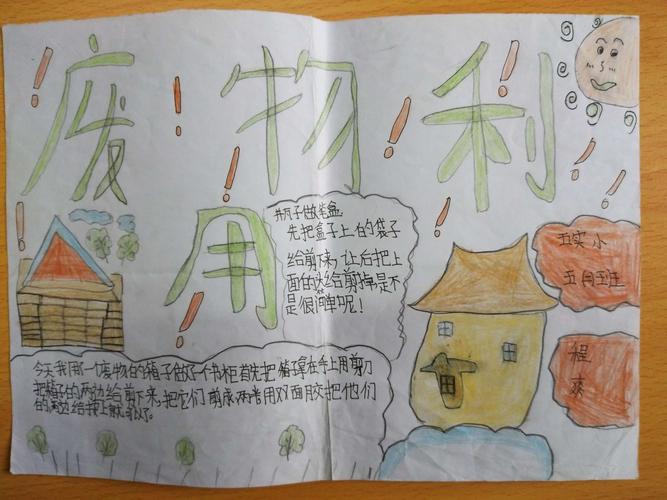 废物利
用
瓶子做笔盒
先把盒子上的袋子
给剪下来,让后把上
面的给剪掉是不
是很简单呢!
五实小
五月班
程
今天我用一个废物的箱子做了一个书柜首先把箱子拿在手上用剪刀
把箱子的两边给剪下来,把它们剪成两半用双面胶把他们
的两边给我上就可以了。